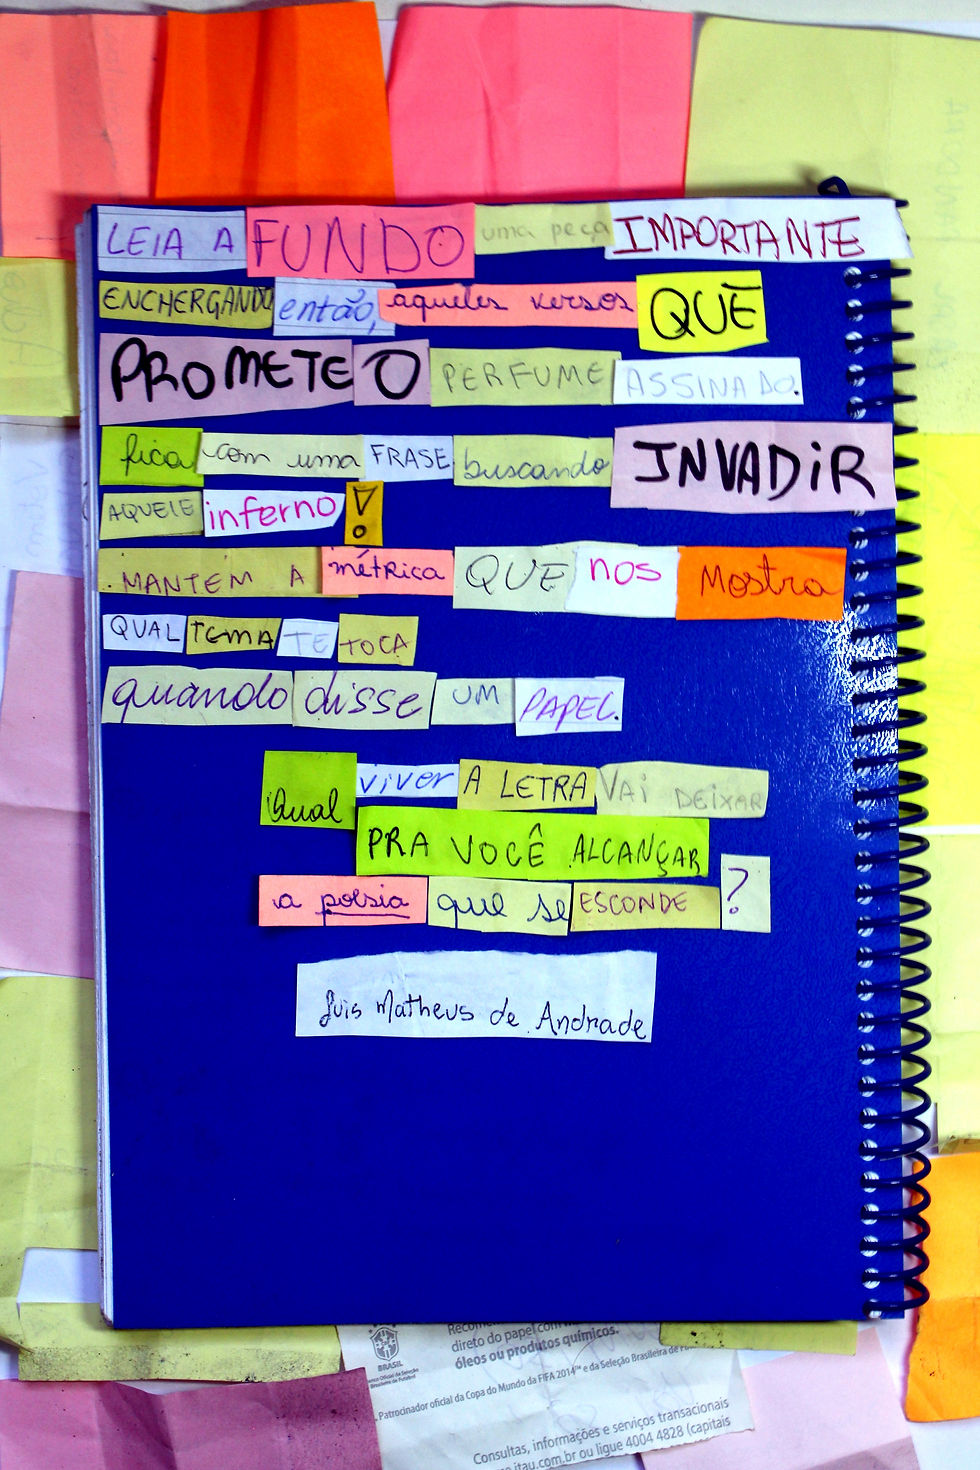 LEIA A FUNDO uma peça IMPORTANTE
ENCHERGANDO então, aqueles versos QUE
PROMETE O PERFUME ASSINADO.
fica com uma FRASE buscando INVADIR
AQUELE inferno!
MANTEM A métrica QUE nos Mostra
QUAL TEMA TE TOCA
quando disse UM PAPEL.
Qual viver A LETRA VAI DEIXAR
PRA VOCÊ ALCANÇAR
a poesia que se ESCONDE ?
Luis Matheus de Andrade
direto do papel com
óleos ou produtos químicos.
BRASIL
Patrocinador oficial da Copa do Mundo da FIFA 2014™ e da Seleção Brasileira de
Consultas, informações e serviços transacionais
itau.com.br ou ligue 4004 4828 (capitais